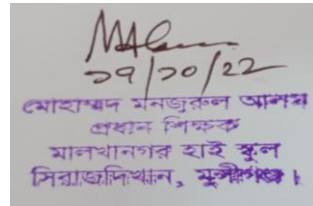 ২৭/১০/22
মোহাম্মদ মনজুরুল আলম
প্রধান শিক্ষক
মালখানগর হাই স্কুল
সিরাজদিখান, মুন্সীগঞ্জ।